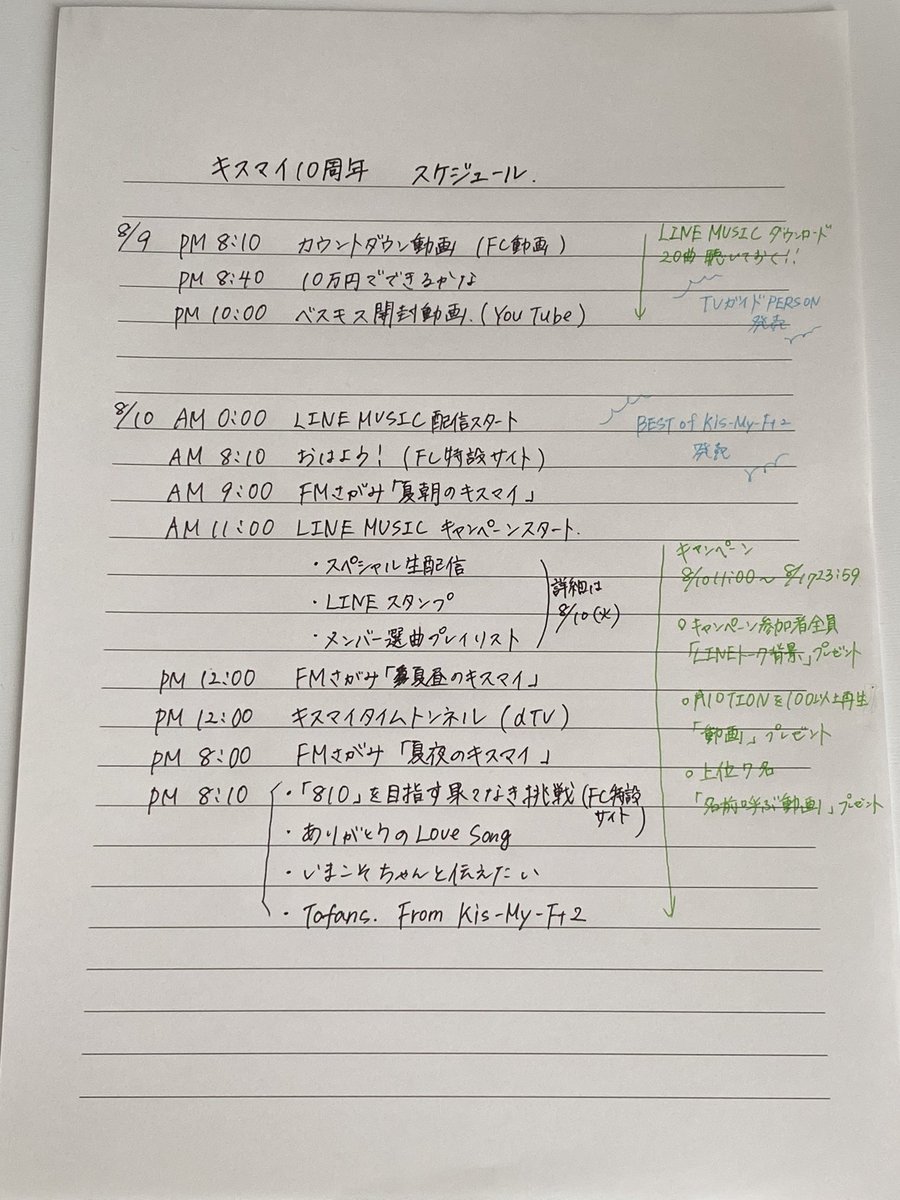 キスマイ10周年 スケジュール.
8/9 PM 8:10 カウントダウン動画 (FC動画)
PM 8:40 10万円でできるかな
PM 10:00 ベスキス開封動画.(YouTube)
LINE MUSIC ダウンロード
20曲 聴いておく!!
TVガイドPERSON
発売
8/10 AM 0:00 LINE MUSIC配信スタート
AM 8:10 おはよう! (FC特設サイト)
AM 9:00 FMさがみ「夏朝のキスマイ」
AM 11:00 LINE MUSIC キャンペーンスタート.
・スペシャル生配信
・LINEスタンプ
・メンバー選曲プレイリスト
詳細は
8/10(火)
PM 12:00 FMさがみ「夏昼のキスマイ」
PM 12:00 キスマイタイムトンネル (dTV)
PM 8:00 FMさがみ 「夏夜のキスマイ」
PM 8:10 ・「810」を目指す果てなき挑戦 (FC特設
サイト)
・ありがとうのLove Song
・いまこそちゃんと伝えたい
・Tofans. From Kis-My-Ft2
BEST of Kis-My-Ft2
発売
キャンペーン
8/10 11:00〜 8/17 23:59
○キャンペーン参加者全員
「LINEトーク背景」プレゼント
○A10TIONを100以上再生
「動画」プレゼント
○上位7名
「名前呼ぶ動画」プレゼント